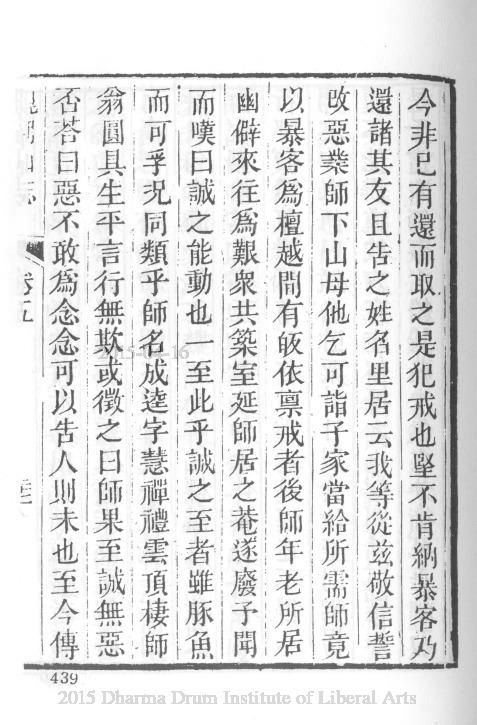 今非已有還而取之是犯戒也堅不肯納暴客乃
還諸其友且告之姓名里居云我等從玆敬信誓
改惡業師下山毋他乞可詣予家當給所需師竟
以暴客為檀越間有皈依禀戒者後師年老所居
幽僻來往為艱眾共築室延師居之菴遂廢予聞
而嘆曰誠之能動也一至此乎誠之至者雖豚魚
而可孚况同類乎師名成逵字慧禪禮雲頂棲師
翁圓具生平言行無欺或徵之曰師果至誠無惡
否荅曰惡不敢為念念可以告人則未也至今傳
卷五
439
2015 Dharma Drum Institute of Liberal Arts